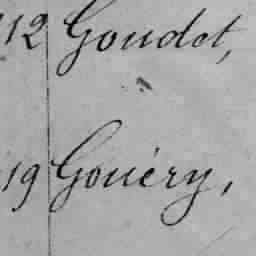 112 Goudet,
19 Gouéry,